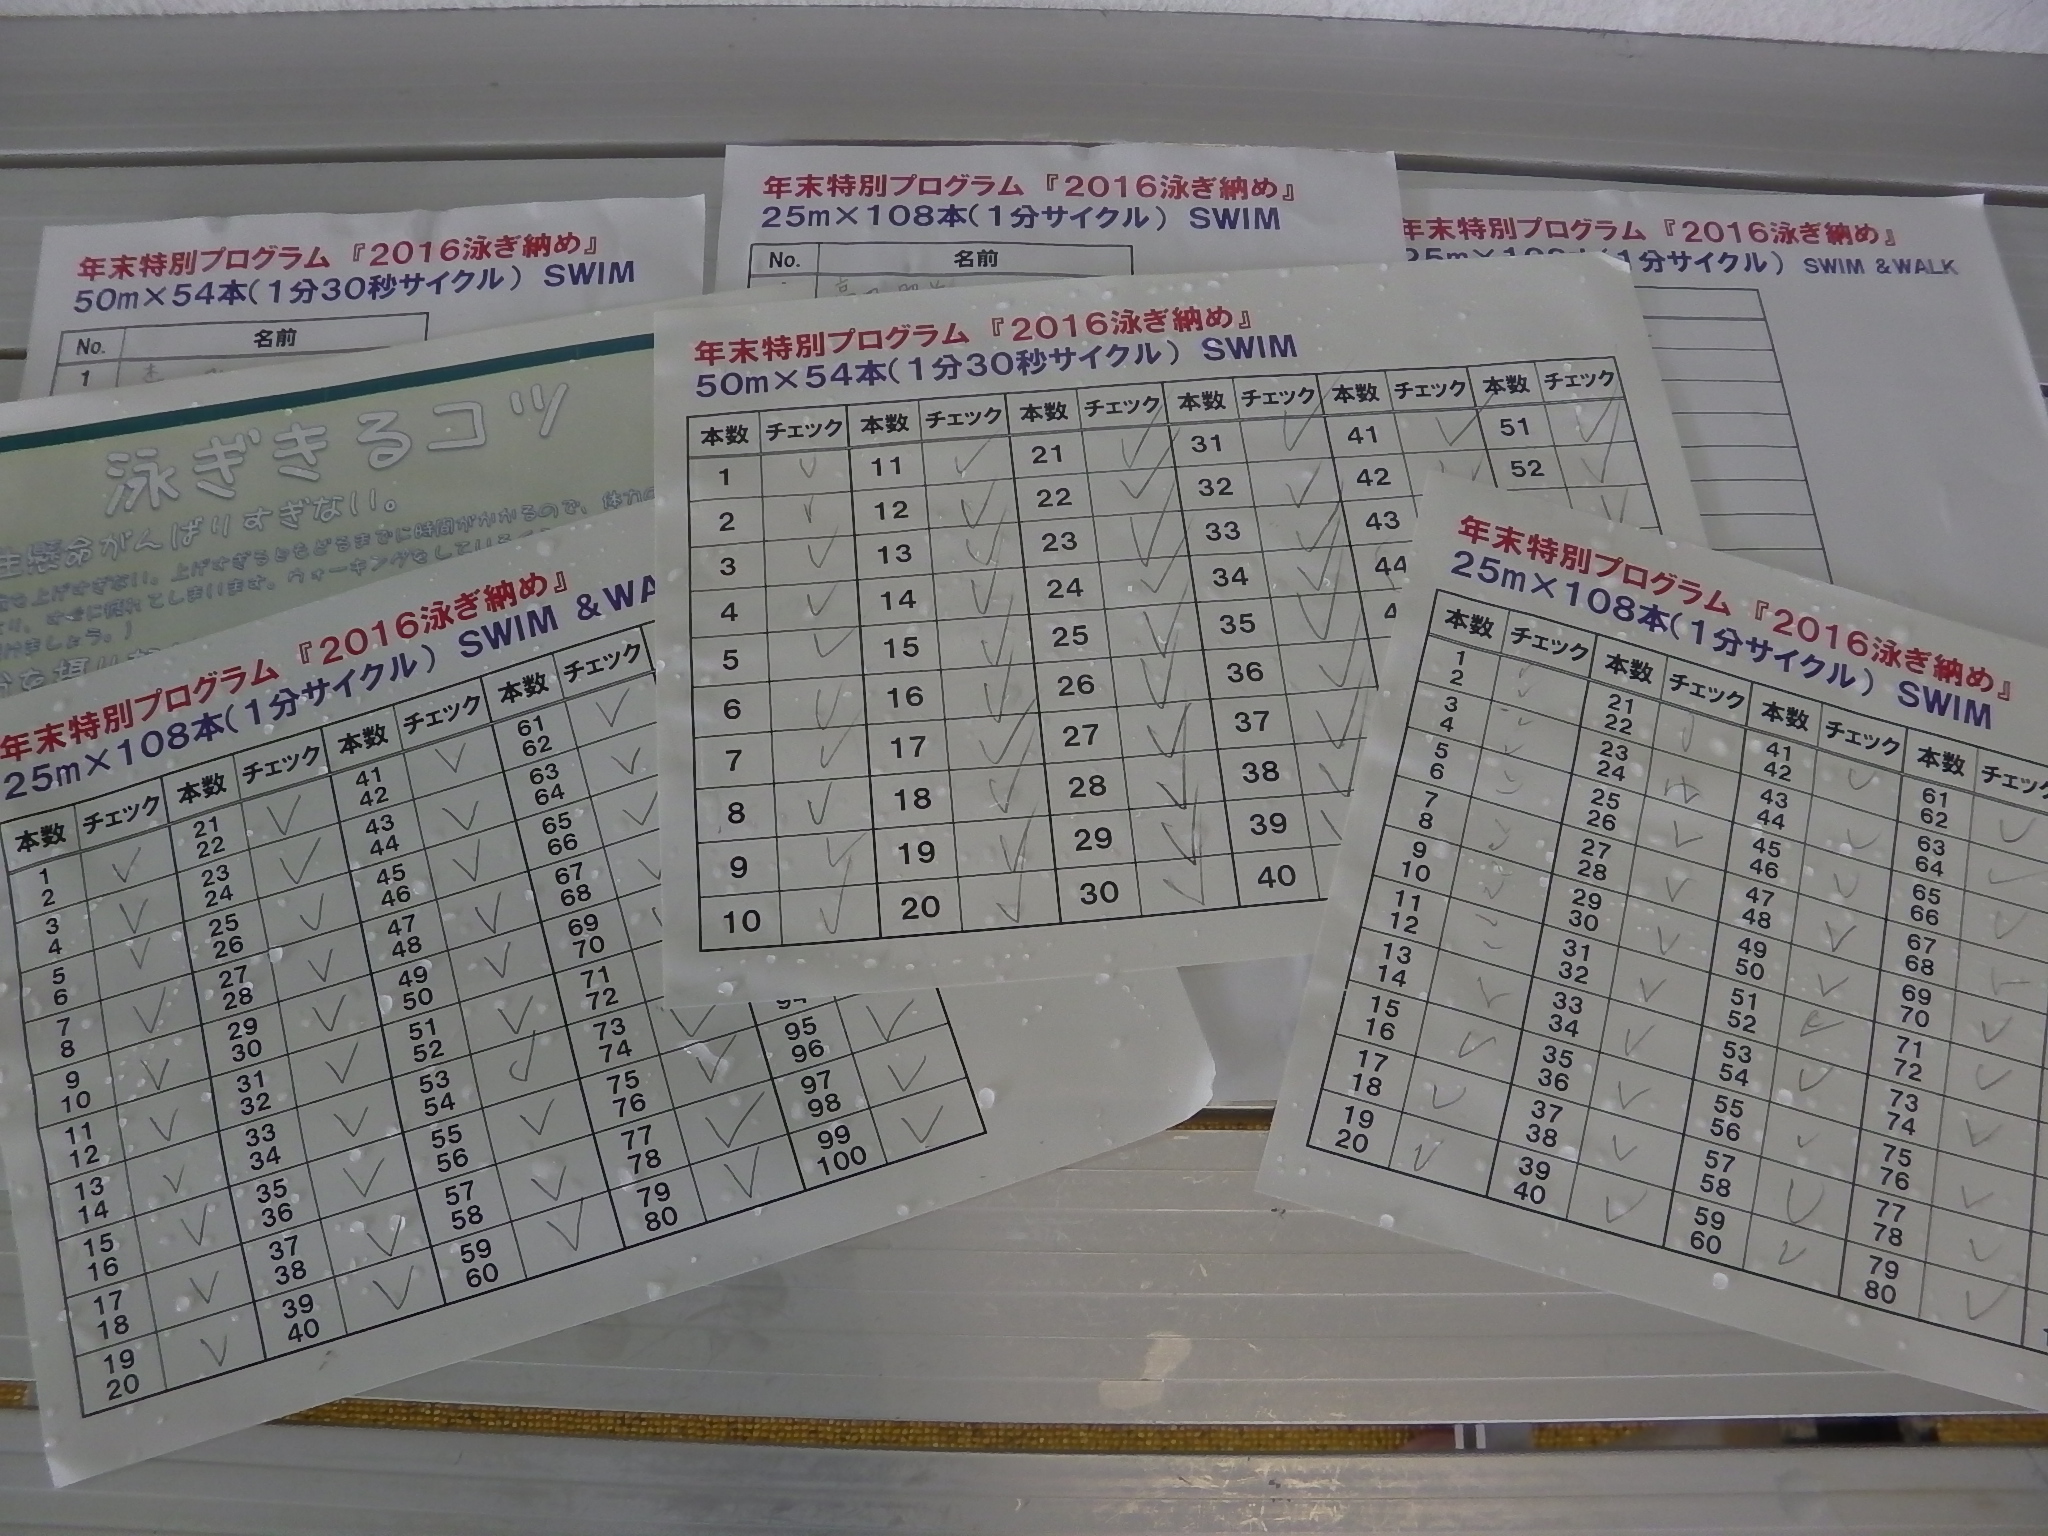 年末特別プログラム『2016泳ぎ納め』
50m×54本(1分30秒サイクル) SWIM
No. 名前
1
年末特別プログラム『2016泳ぎ納め』
25m×108本(1分サイクル) SWIM
No. 名前
年末特別プログラム『2016泳ぎ納め』
1分サイクル) SWIM &WALK
泳ぎきるコツ
生懸命がんばりすぎない。
上げすぎない。上げすぎるともどるまでに時間がかかるので、体力の
すぐに疲れてしまいます。ウォーキングをしている
けましょう。)
年末特別プログラム『2016泳ぎ納め』
50m×54本(1分30秒サイクル) SWIM
本数 チェック 本数 チェック 本数 チェック 本数 チェック 本数 チェック 本数 チェック
1 11 21 31 41 51
2 12 22 32 42 52
3 13 23 33 43
4 14 24 34 44
5 15 25 35 4
6 16 26 36
7 17 27 37
8 18 28 38
9 19 29 39
10 20 30 40
年末特別プログラム『2016泳ぎ納め』
25m×108本(1分サイクル) SWIM &WA
本数 チェック 本数 チェック 本数 チェック 本数 チェック
1 21 41 61
2 22 42 62
3 23 43 63
4 24 44 64
5 25 45 65
6 26 46 66
7 27 47 67
8 28 48 68
9 29 49 69
10 30 50 70
11 31 51 71
12 32 52 72
13 33 53 73
14 34 54 74 95
15 35 55 75 96
16 36 56 76 97
17 37 57 77 98
18 38 58 78 99
19 39 59 79 100
20 40 60 80
年末特別プログラム『2016泳ぎ納め』
25m×108本(1分サイクル) SWIM
本数 チェック 本数 チェック 本数 チェック 本数 チェッ
1 21 41 61
2 22 42 62
3 23 43 63
4 24 44 64
5 25 45 65
6 26 46 66
7 27 47 67
8 28 48 68
9 29 49 69
10 30 50 70
11 31 51 71
12 32 52 72
13 33 53 73
14 34 54 74
15 35 55 75
16 36 56 76
17 37 57 77
18 38 58 78
19 39 59 79
20 40 60 80